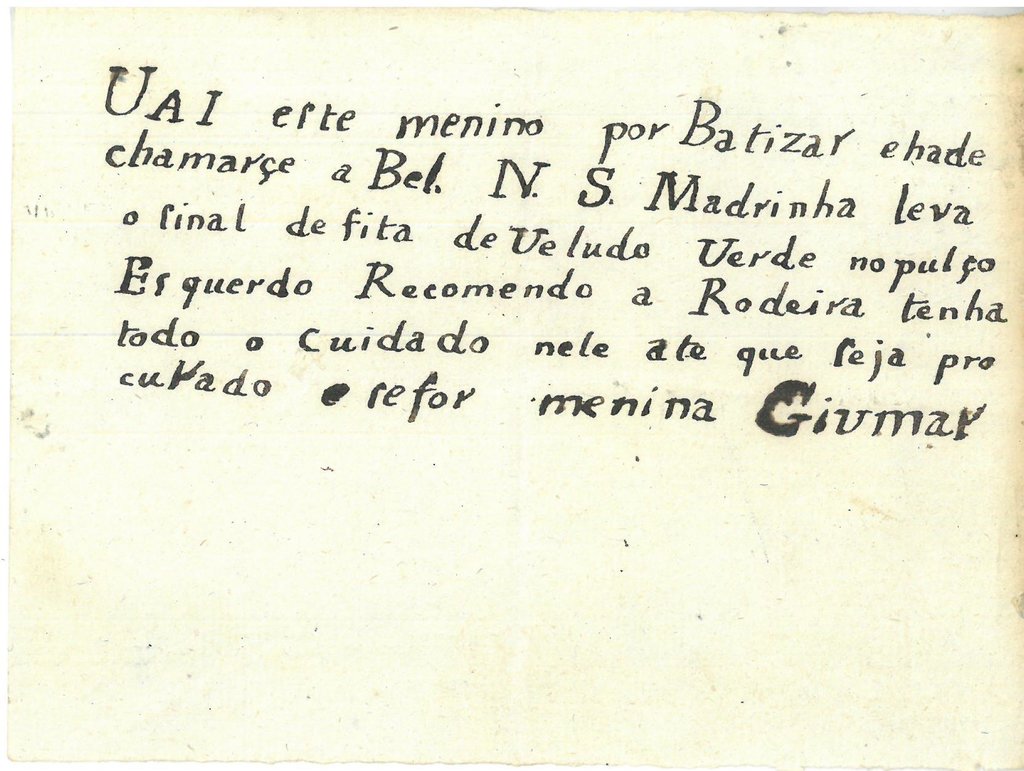 UAI eſte menino por Batizar ehade
chamarçe a Bel. N. S. Madrinha leva
o ſinal de fita de Veludo Verde no pulço
Eſquerdo Recomendo a Rodeira tenha
todo o Cuidado nele ate que ſeja pro
curado e ſefor menina Giumar